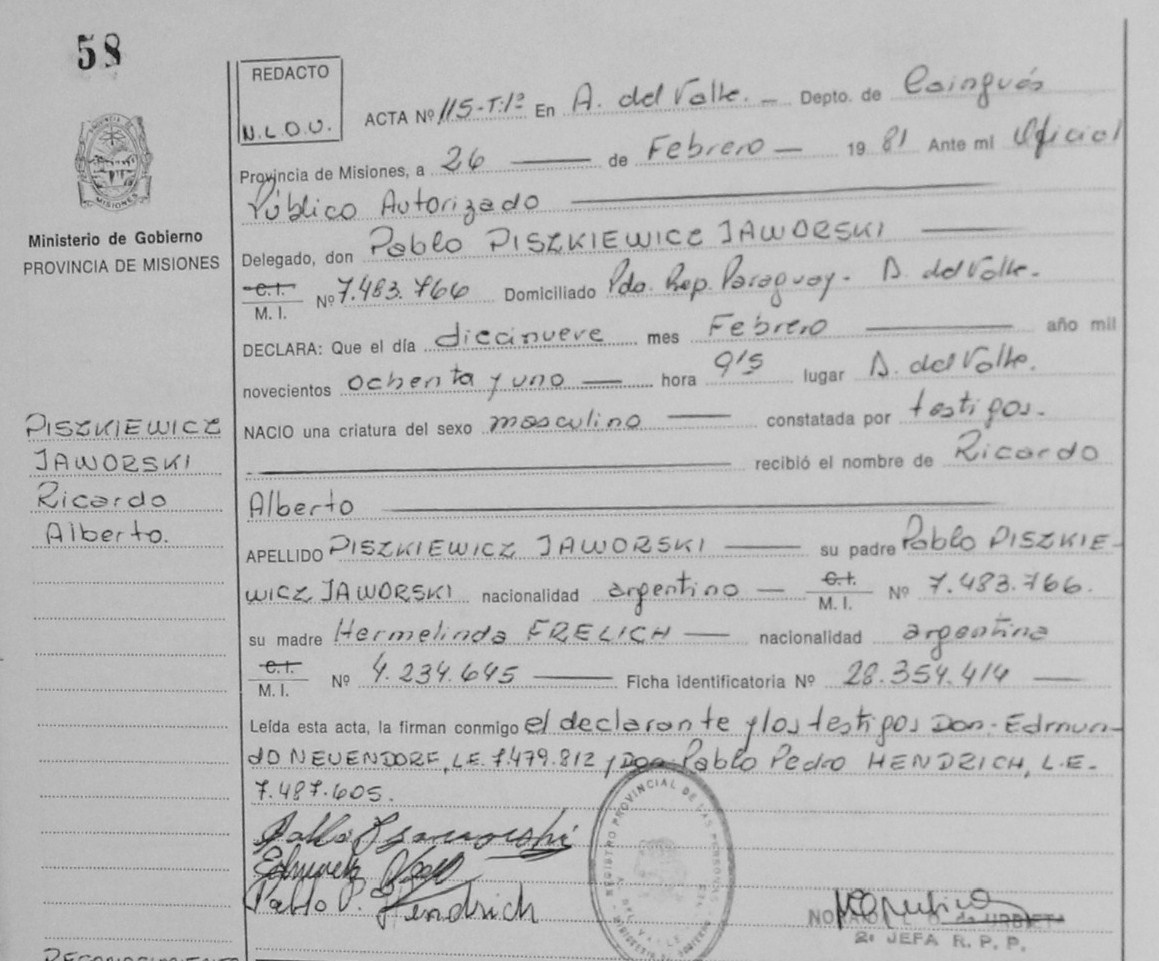 58
REDACTO
N.L.O.U.
ACTA Nº 115-T:1º En A. del Valle. — Depto. de Cainguás
Provincia de Misiones, a 26 — de Febrero — 19 81 Ante mi Oficial
Público Autorizado
Delegado, don Pablo PISZKIEWICZ JAWORSKI
C.I.
M. I. Nº 7.483.766 Domiciliado Pdo. Rep. Paraguay - A. del Valle.
DECLARA: Que el día diecinueve mes Febrero — año mil
novecientos ochenta y uno — hora 9'5 lugar A. del Valle.
NACIO una criatura del sexo masculino — constatada por testigos.
recibió el nombre de Ricardo
Alberto
APELLIDO PISZKIEWICZ JAWORSKI — su padre Pablo PISZKIE-
WICZ JAWORSKI nacionalidad argentino — C.I. M. I. Nº 7.483.766.
su madre Hermelinda FRELICH — nacionalidad argentina
C.I.
M. I. Nº 4.234.645 — Ficha identificatoria Nº 28.354.414 —
Leída esta acta, la firman conmigo el declarante y los testigos Don. Edmun-
do NEUENDORF, L.E. 7.479.812 y Don Pablo Pedro HENDRICH, L.E.
7.487.605.
Pablo P. Hendrich
REGISTRO PROVINCIAL DE LAS PERSONAS
2º JEFA R. P. P.
MISIONES
Ministerio de Gobierno
PROVINCIA DE MISIONES
PISZKIEWICZ
JAWORSKI
Ricardo
Alberto.
RECONOCIMIENTO